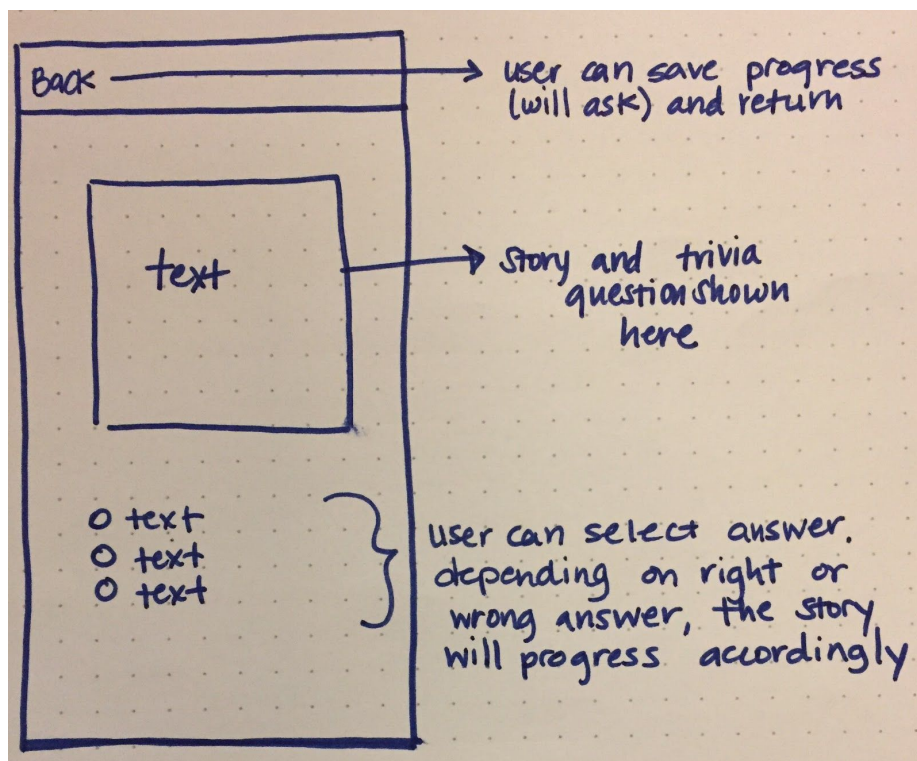 Back
user can save progress
(will ask) and return
text
story and trivia
question shown
here
text
text
text
user can select answer.
depending on right or
wrong answer, the story
will progress accordingly